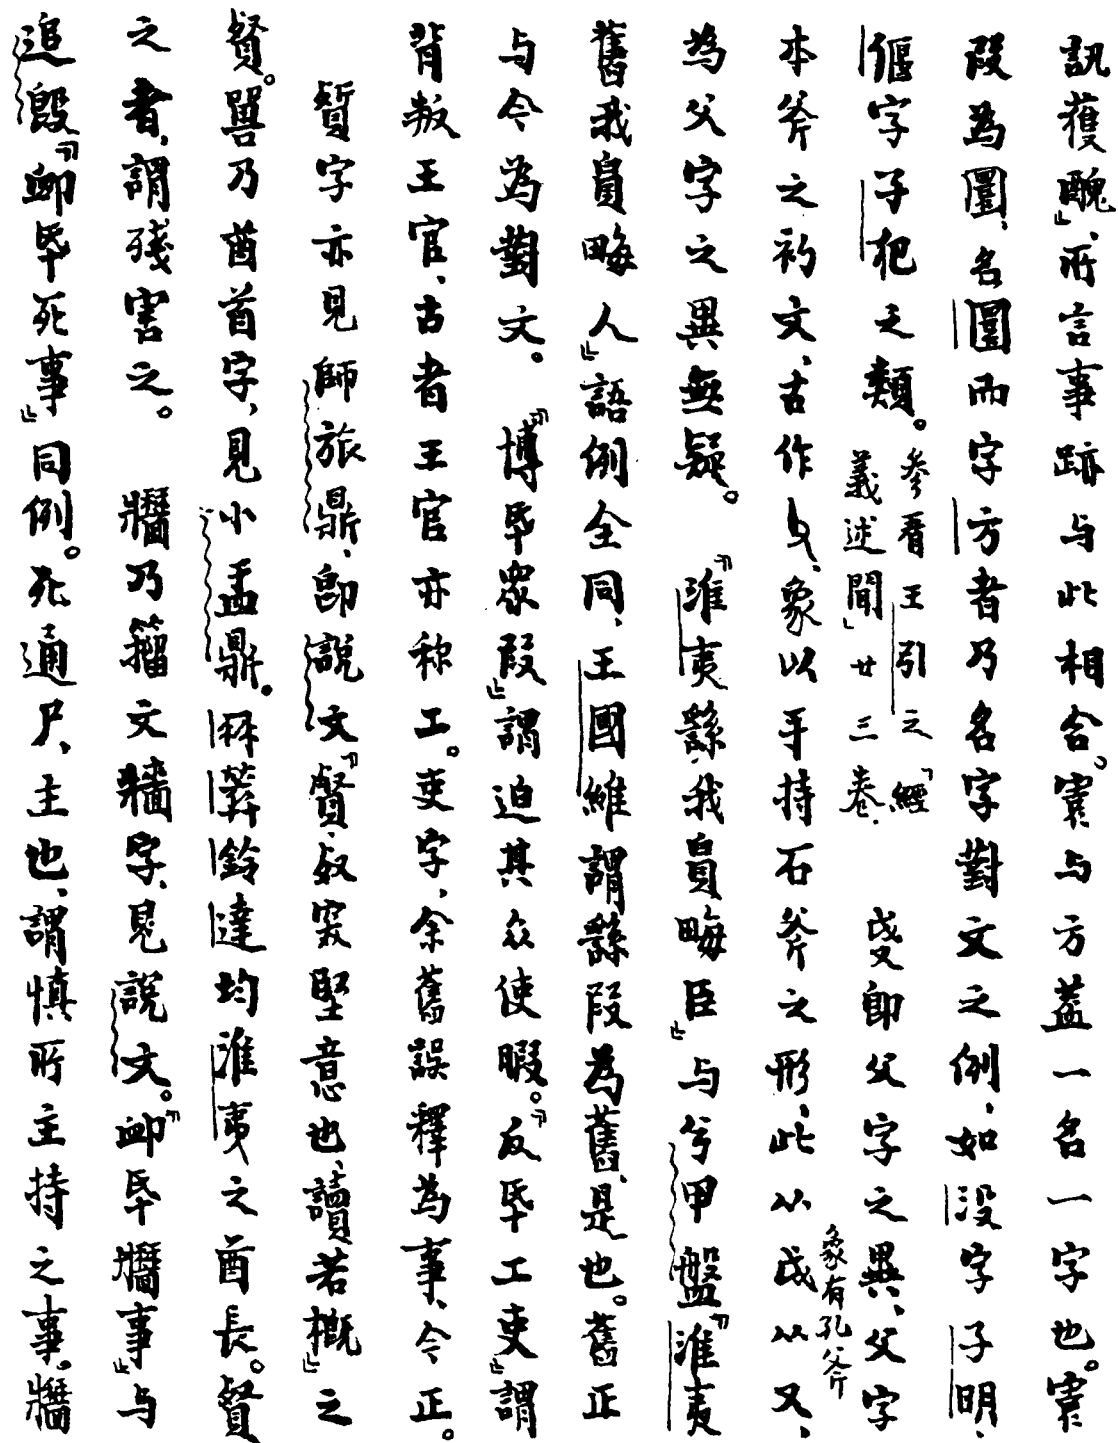 訊獲醜」、所言事跡与此相合。䨓与方蓋一名一字也。䨓
段為圛、名圛而字方者乃名字對文之例、如没字子明、
偃字子犯之類。參看王引之「經義述聞」廿三卷． 即父字之異、父字
本斧之初文、古作、象以手持石斧之形、此从戉从又、象有孔斧
為父字之異無疑。「淮夷繇我畮臣」与兮甲盤「淮夷
舊我畮人」語例全同、王國維謂繇段為舊、是也。舊正
与今為對文。「博氒衆叚」謂迫其众使暇。「反氒工吏」謂
背叛王官、古者王官亦称工。吏字、余舊誤釋為事、今正。
字亦見師旅鼎、即說文「𧷎、𣦼𥤢堅意也、讀若概」之
𧷎。嘼乃酋首字、見小盂鼎。冉䓝鈴達均淮夷之酋長。𧷎
之者、謂殘害之。 乃籀文牆字、見說文。「卹氒事」与
追𣪘「卹氒死事」同例。死通尸、主也、謂慎所主持之事。